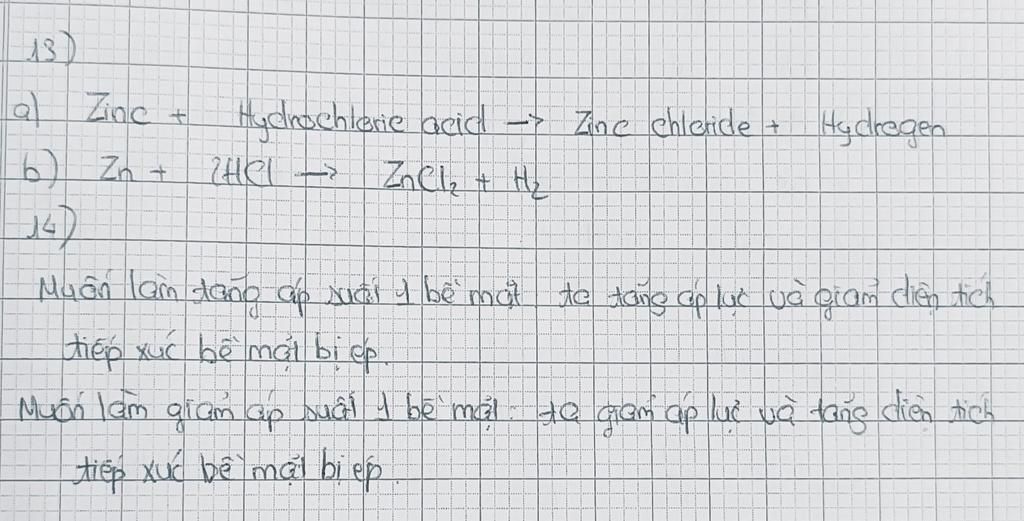 13)
a) Zinc + Hydrochloric acid → Zinc chloride + Hydrogen
b) Zn + 2HCl → ZnCl₂ + H₂
14)
Muốn làm tăng áp suất 1 bề mặt ta tăng áp lực và giảm diện tích
tiếp xúc bề mặt bị ép.
Muốn làm giảm áp suất 1 bề mặt ta giảm áp lực và tăng diện tích
tiếp xúc bề mặt bị ép.